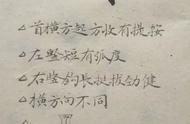 △首横方起方收有提按
△左竖短有弧度
△右竖钩长挺拔劲健
△横方向不同